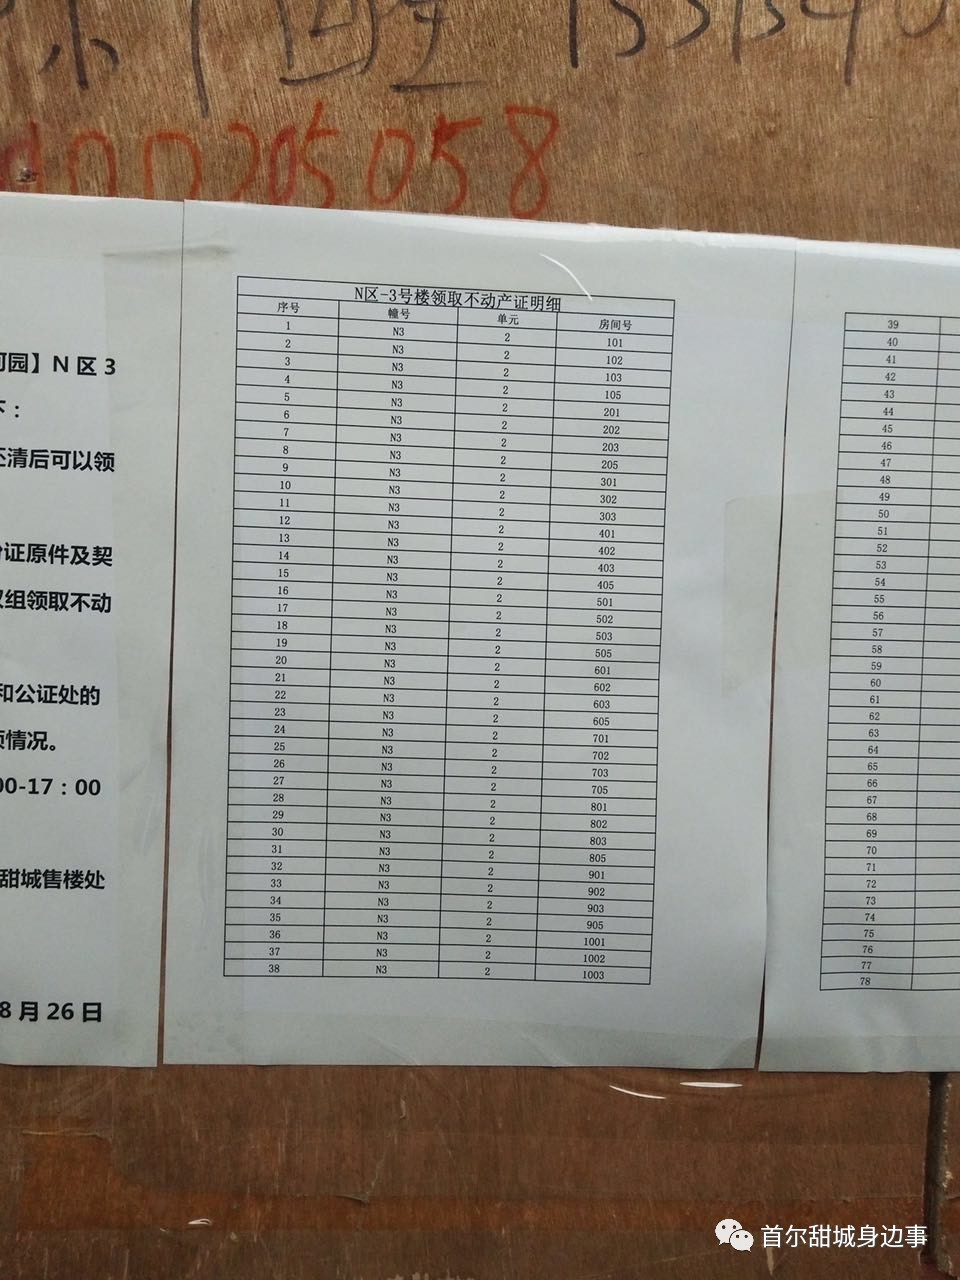 00205058
可园】N 区 3
下：
还清后可以领
份证原件及契
权组领取不动
和公证处的
领情况。
00-17：00
甜城售楼处
8 月 26 日
N区-3号楼领取不动产证明细
序号 幢号 单元 房间号
1 N3 2 101
2 N3 2 102
3 N3 2 103
4 N3 2 105
5 N3 2 201
6 N3 2 202
7 N3 2 203
8 N3 2 205
9 N3 2 301
10 N3 2 302
11 N3 2 303
12 N3 2 401
13 N3 2 402
14 N3 2 403
15 N3 2 405
16 N3 2 501
17 N3 2 502
18 N3 2 503
19 N3 2 505
20 N3 2 601
21 N3 2 602
22 N3 2 603
23 N3 2 605
24 N3 2 701
25 N3 2 702
26 N3 2 703
27 N3 2 705
28 N3 2 801
29 N3 2 802
30 N3 2 803
31 N3 2 805
32 N3 2 901
33 N3 2 902
34 N3 2 903
35 N3 2 905
36 N3 2 1001
37 N3 2 1002
38 N3 2 1003
39
40
41
42
43
44
45
46
47
48
49
50
51
52
53
54
55
56
57
58
59
60
61
62
63
64
65
66
67
68
69
70
71
72
73
74
75
76
77
78
首尔甜城身边事